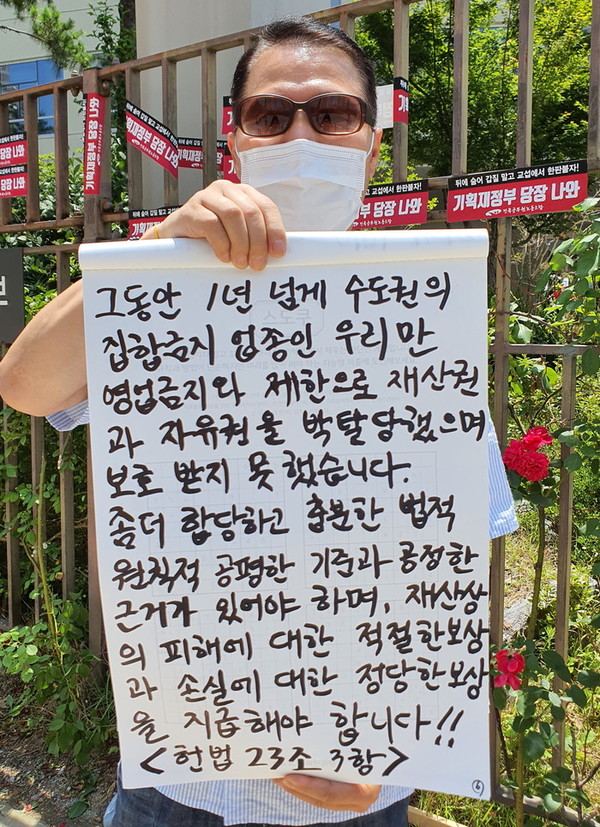 그동안 1년 넘게 수도권의
집합금지 업종인 우리만
영업금지와 제한으로 재산권
과 자유권을 박탈당했으며
보호 받지 못했습니다.
좀더 합당하고 충분한 법적
원칙적 공평한 기준과 공정한
근거가 있어야 하며, 재산상
의 피해에 대한 적절한보상
과 손실에 대한 정당한보상
을 지급해야 합니다!!
<헌법 23조 3항>
6
뒤에 숨어 갑질 말고 교섭에서 한판붙자!
기획재정부 당장 나와
기획재정부 당장 나와
기획재정부 당장 나와
뒤에 숨어 갑질 말고 교섭에서 한판붙자!
부 당장 나와